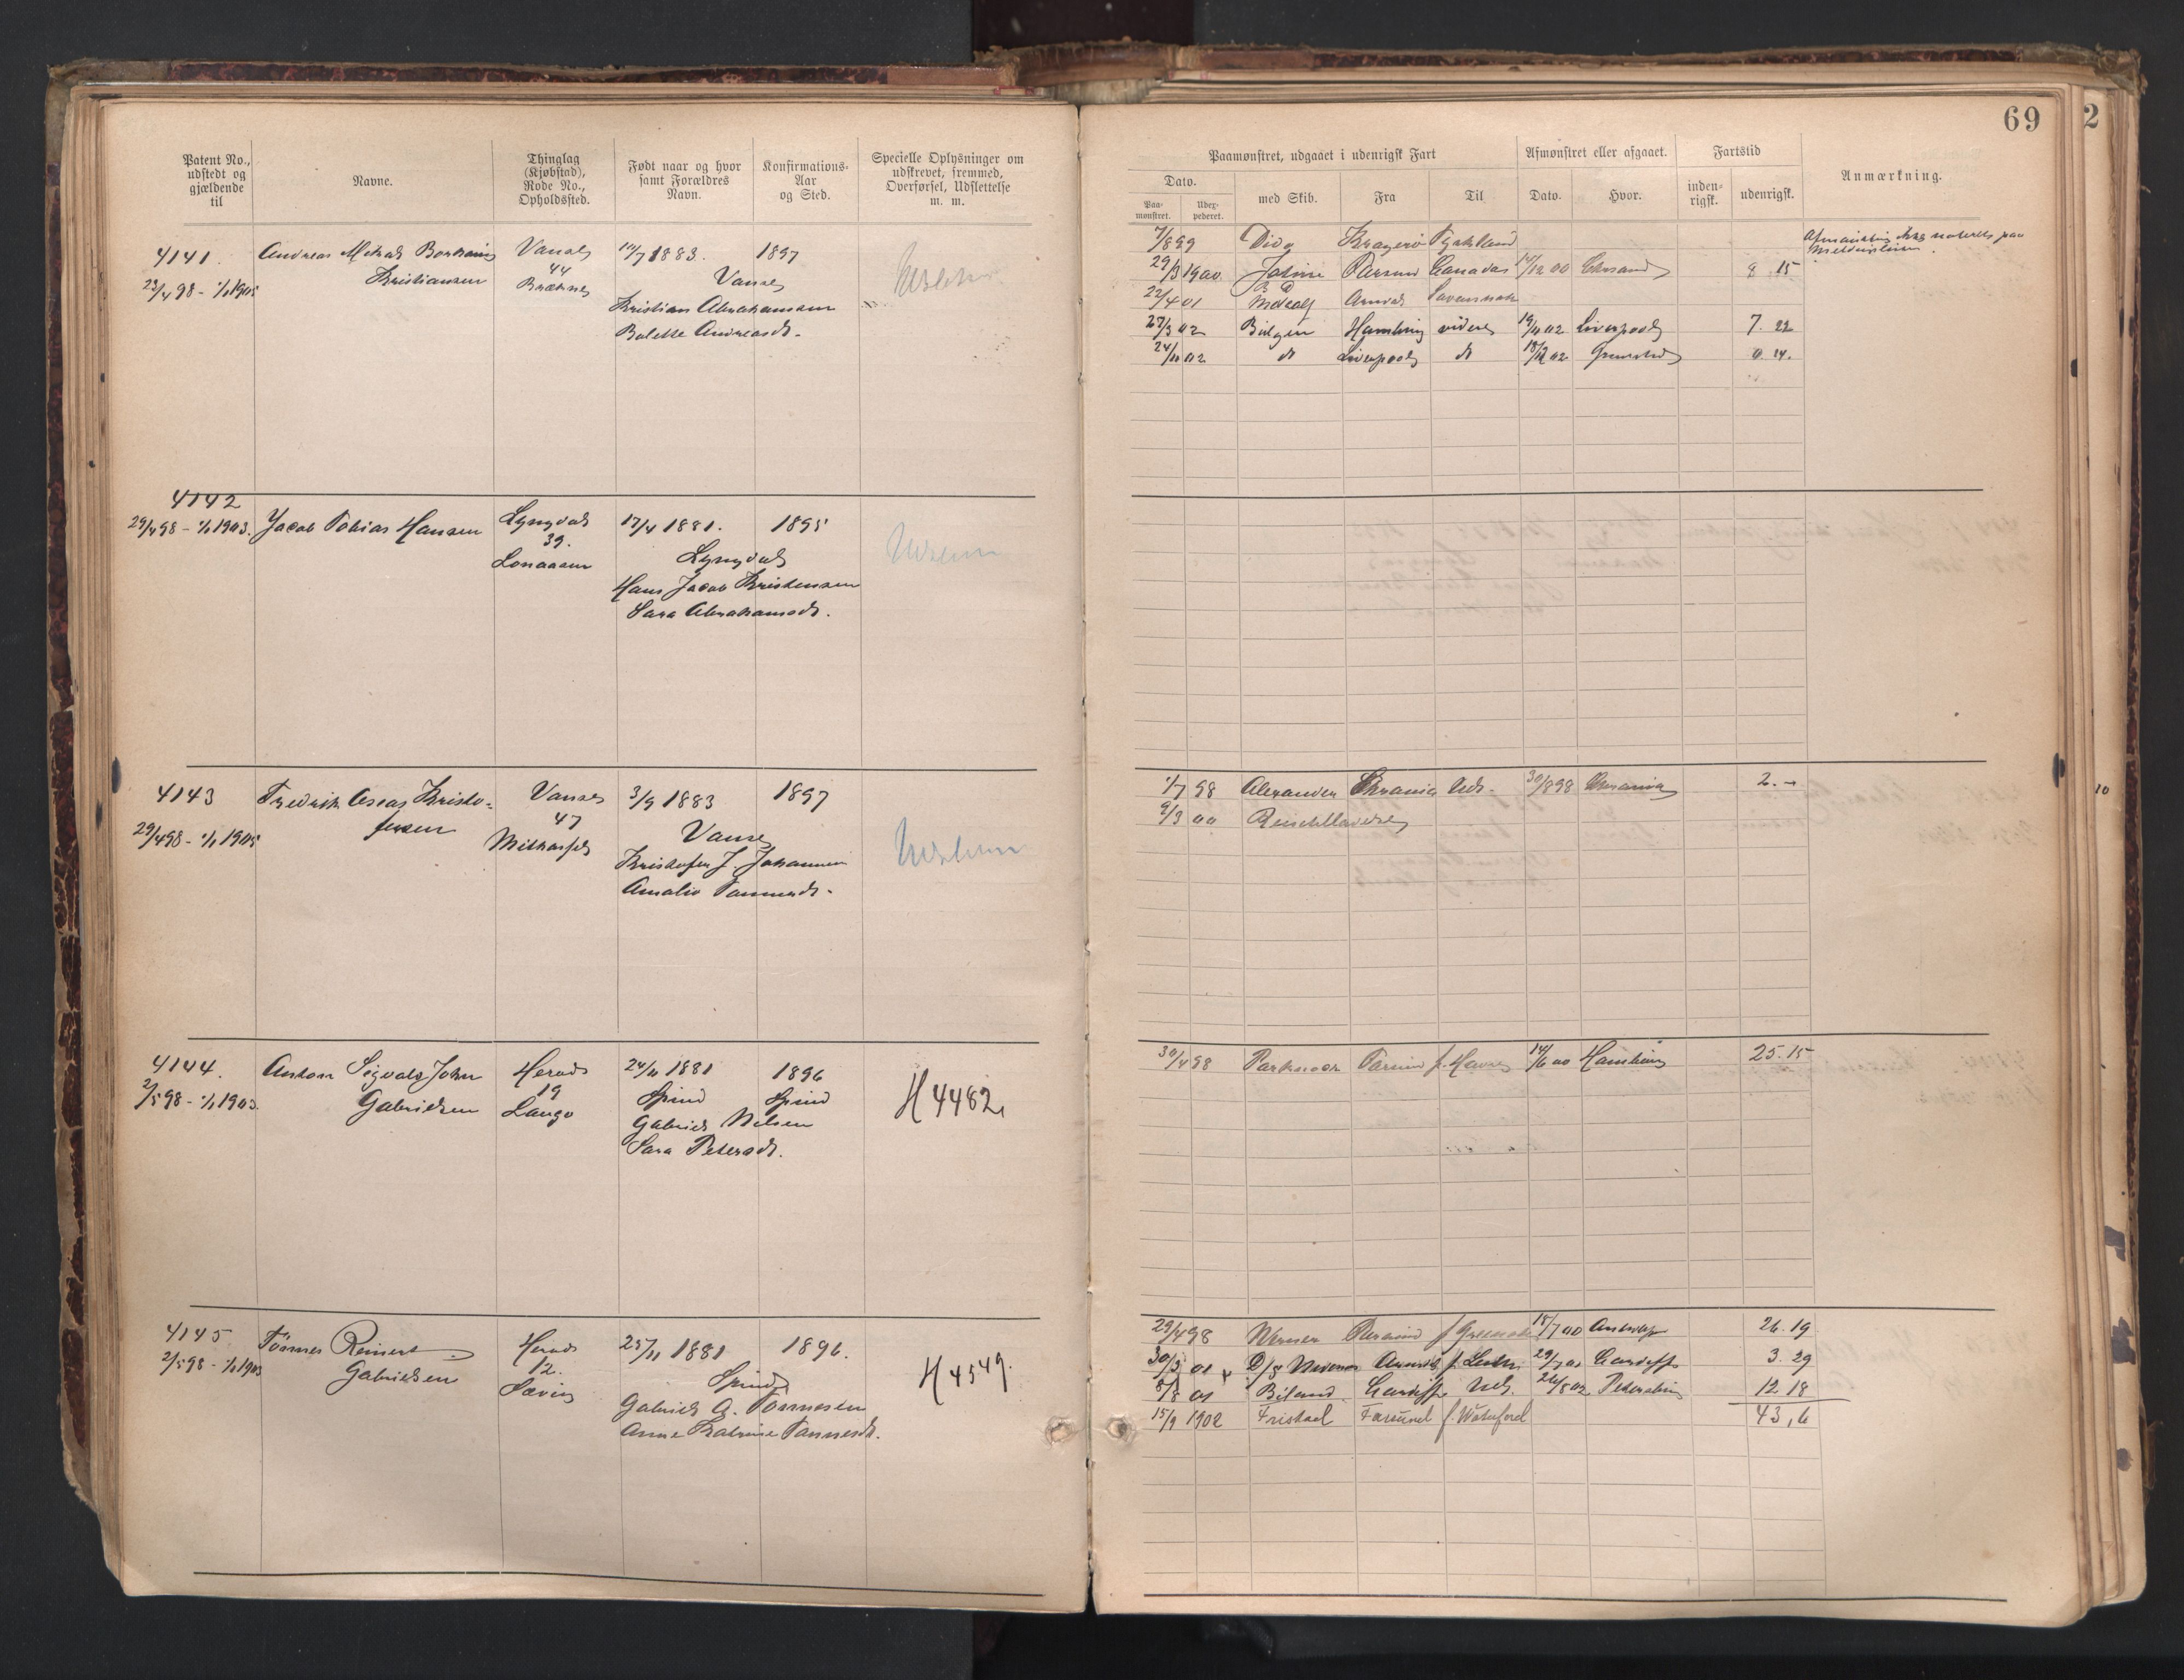 69
2
Patent No., udstedt og gjældende til
Navne.
Thinglag (Kjøbstad), Rode No., Opholdssted.
Født naar og hvor samt Forældres Navn.
Konfirmations-Aar og Sted.
Specielle Oplysninger om udskrevet, fremmed, Overførsel, Udslettelse m. m.
Paamønstret, udgaaet i udenrigsk Fart
Afmønstret eller afgaaet.
Fartstid
Anmærkning.
Dato.
med Skib.
Fra
Til
Dato.
Hvor.
inden-rigsk.
udenrigsk.
Paa-mønstret.
Udex-pederet.
4141.
23/4 98 - 1/1 1905
Andreas
Kristiansen
Vanse
44
10/7 1883.
1897
Vanse
Kristian Abrahamsen
Bolette Andreasdt.
7/8 99 Diva Kragerø Tyskland
29/3 1900 Farsund Canada 14/12 00 Chrsand 8 15
22/4 01 Arendal Savannah
27/3 02 Bølgen Hamburg videre 19/11 02 Liverpool 7. 22
24/11 02 do Liverpool do 18/12 02 Grimstad 0 24.
Afmønstring ikke noteret paa
4142
29/4 98 - 1/1 1903.
Jacob Tobias Hansen
Lyngdal
39.
Lonaasen
17/4 1881.
1895
Lyngdal
Hans Jacob Kristensen
Sara Abrahamsdt.
4143
29/4 98 - 1/1 1905
Fredrik Aseas Kristo-
fersen
Vanse
47
3/9 1883
1897
Vanse
Kristofer J. Johannesen
Amalie Tønnesdt.
1/7 98 Alexander Chrania Uds. 30/8 98 Chrania 2. -
9/3 00
4144.
2/5 98 - 1/1 1903.
Anton Sigvald John
Gabrielsen
Herad
19
Lange
24/11 1881
1896
Spind
Spind
Gabriel Nilsen
Sara Petersdt.
H 4482,
30/4 98 Parkmoor Farsund f. Havre 14/6 00 Hamburg 25. 15
4145
2/5 98 - 1/1 1903
Tönnes Reinert
Gabrielsen
Herad
12.
Sævig
25/11 1881
1896.
Spind
Gabriel G. Tönnesen
Anne Katrine Tønnesdt.
H 4549.
29/4 98 Werner Farsund f Greenock 18/7 00 Antwerp 26. 19
30/3 01 D/S Arendal f. Leith 29/7 01 Cardiff 3. 29
8/8 01 Cardiff Uds. 26/8 02 Petersburg 12 18
15/9 1902 Fristad Farsund f. Waterford
43,6